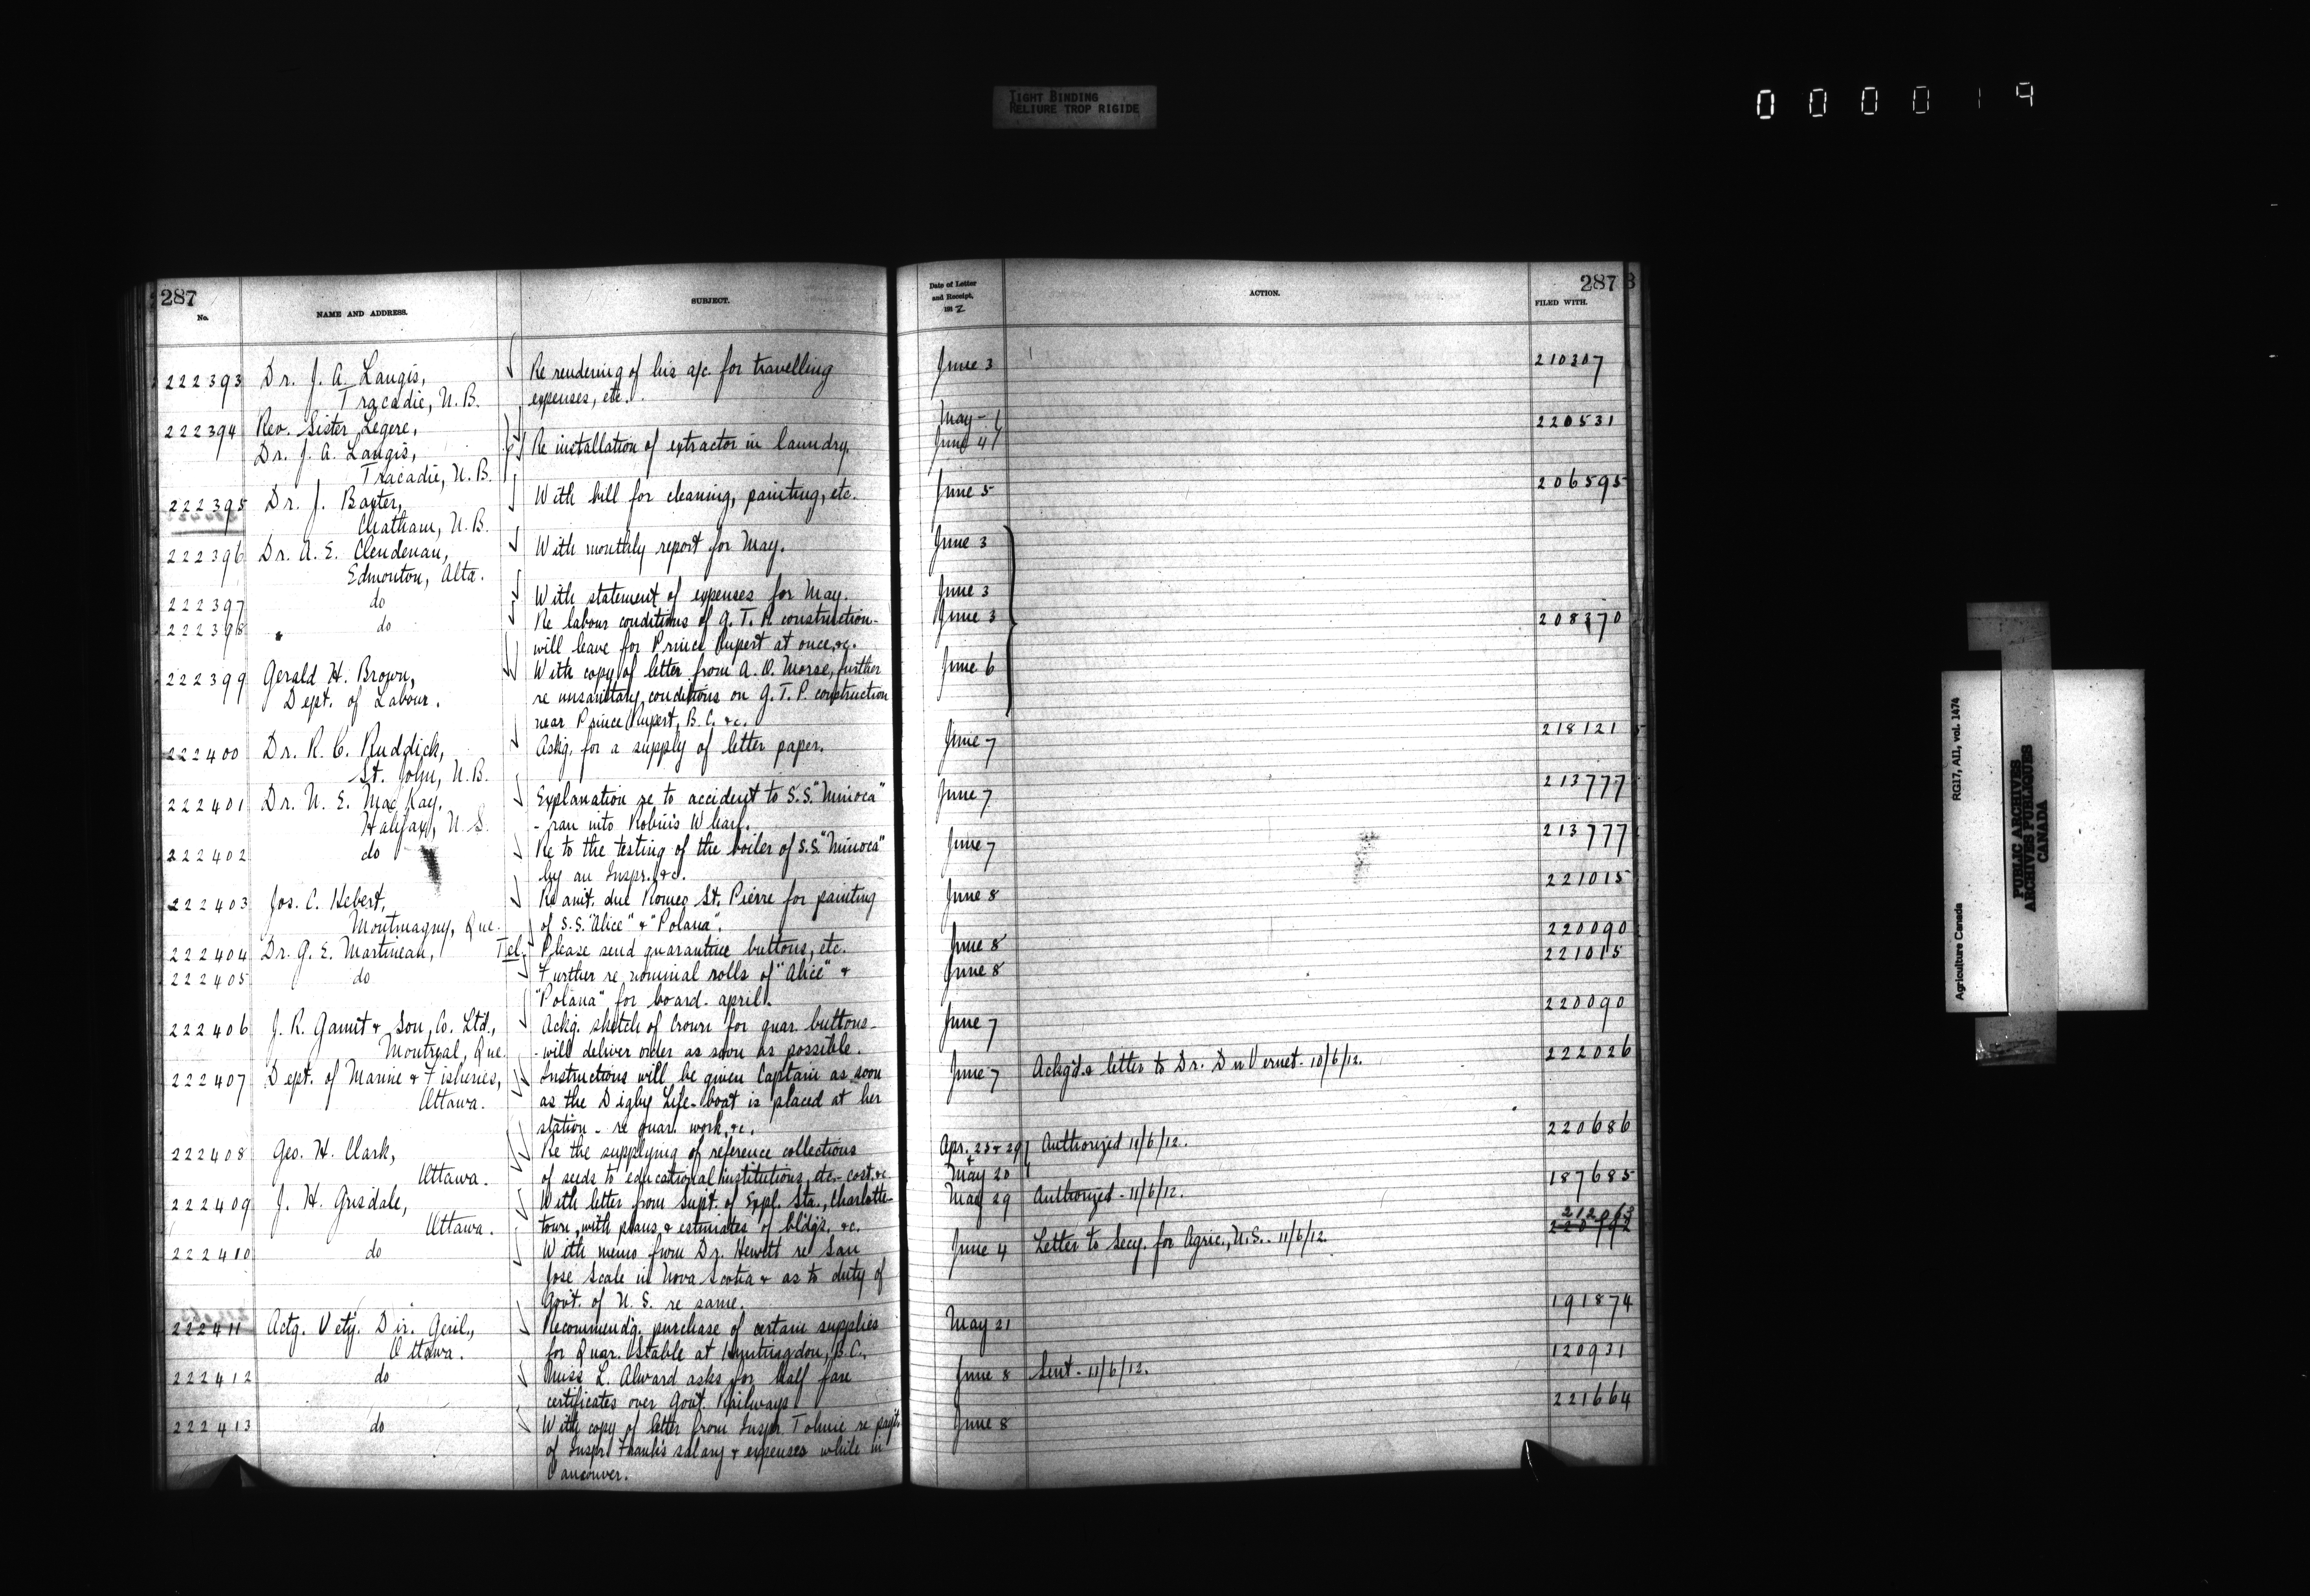 TIGHT BINDING
RELIURE TROP RIGIDE
000019
287
No.
NAME AND ADDRESS.
SUBJECT.
222393 Dr. J. A. Langis, Re rendering of his a/c. for travelling
Tracadie, N. B. expenses, etc.
222394 Rev. Sister Legere,
Dr. J. A. Langis, Re installation of extractor in laundry.
Tracadie, N. B.
222395 Dr. J. Baxter, With bill for cleaning, painting, etc.
Chatham, N. B.
222396 Dr. A. E. Clendenan, With monthly report for May.
Edmonton, Alta.
222397 do With statement of expenses for May.
222398 " do Re labour conditions of G. T. P. construction-
will leave for Prince Rupert at once, &c.
222399 Gerald H. Brown, With copy of letter from A. O. Morse, further
Dept. of Labour. re unsanitary conditions on G. T. P. construction
near Prince Rupert, B. C. &c.
222400 Dr. R. C. Ruddick, Ackg. for a supply of letter paper.
St. John, N. B.
222401 Dr. N. E. MacKay, Explanation re to accident to S.S. "Minoca"
Halifax, N. S. - ran into Robin's Wharf.
222402 do Re to the testing of the boiler of S.S. "Minoca"
by an Inspr. &c.
222403 Jos. C. Hebert, Re amt. due Romeo St. Pierre for painting
Montmagny, Que. of S.S. "Alice" & "Polana".
222404 Dr. G. E. Martineau, Tel. Please send quarantine buttons, etc.
222405 do Further re nominal rolls of "Alice" &
"Polana" for board. April.
222406 J. R. Gaunt & Son, Co. Ltd., Ackg. sketch of Crown for quar. buttons-
Montreal, Que. - will deliver order as soon as possible.
222407 Dept. of Marine & Fisheries, Instructions will be given Captain as soon
Ottawa. as the Digby Life-boat is placed at her
station - re quar. work, &c.
222408 Geo. H. Clark, Re the supplying of reference collections
Ottawa. of seeds to educational institutions, etc.- cost. &c
222409 J. H. Grisdale, With letter from Supt. of Expl. Sta., Charlotte-
Ottawa. town, with plans & estimates of bldgs. &c.
222410 do With memo from Dr. Hewitt re San
Jose Scale in Nova Scotia & as to duty of
Govt. of N. S. re same.
222411 Actg. Vety. Dir. Genl., Recommendg. purchase of certain supplies
Ottawa. for Quar. Stable at Huntingdon, B. C.
222412 do Miss L. Alward asks for half fare
certificates over Govt. Railways
222413 do With copy of letter from Inspr. Tolmie re payt.
of Inspr. Frank's salary & expenses while in
Vancouver.
287
Date of Letter
and Receipt.
ACTION.
FILED WITH.
June 3 210307
May - 220531
June 4
June 5 206595
June 3
June 3
June 3 208370
June 6
June 7 218121
June 7 213777
June 7 213777
June 8 221015
June 8 220090
June 8 221015
June 7 220090
June 7 Ackg'd. & letter to Dr. DuVernet - 10/6/12. 222026
Apr. 25 & 29 Authorized 11/6/12. 220686
& May 20
May 29 Authorized - 11/6/12. 187685
212063
220792
June 4 Letter to Secy. for Agric., N.S. - 11/6/12.
May 21 191874
June 8 Sent - 11/6/12. 120931
June 8 221664
Agriculture Canada
RG17, AII, vol. 1474
PUBLIC ARCHIVES
ARCHIVES PUBLIQUES
CANADA